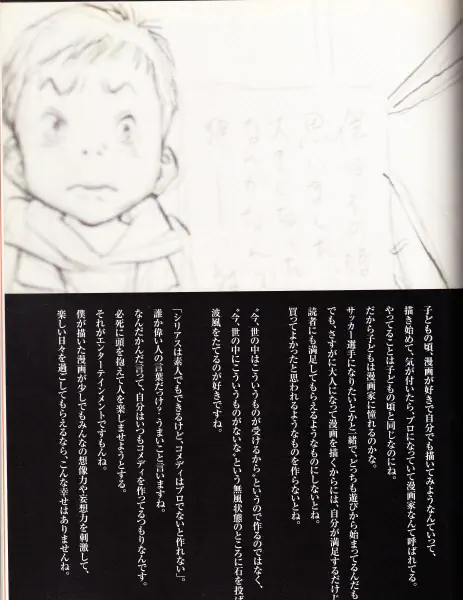 子どもの頃、漫画が好きで自分でも描いてみようなんていって、
描き始めて、気が付いたら、プロになっていて漫画家なんて呼ばれてる。
やってることは子どもの頃と同じなのにね。
だから子どもは漫画家に憧れるのかな。
サッカー選手になりたいとかと一緒で、どっちも遊びから始まってるんだも
でも、さすがに大人になって漫画を描くからには、自分が満足するだけじ
読者にも満足してもらえるようなものにしないとね。
買ってよかったと思われるようなものを作らないとね。
"今、世の中はこういうものが受けるから"というので作るのではなく、
"今、世の中にこういうものがないな"という無風状態のところに石を投げ
波風をたてるのが好きですね。
「シリアスは素人でもできるけど、コメディはプロでないと作れない」。
誰か偉い人の言葉だっけ?うまいこと言いますね。
なんだかんだ言って、自分はいつもコメディを作ってるつもりなんです。
必死に頭を抱えて人を楽しませようとする。
それがエンターテインメントですもんね。
僕が描いた漫画が少しでもみんなの想像力や妄想力を刺激して、
楽しい日々を過ごしてもらえるなら、こんな幸せはありませんね。